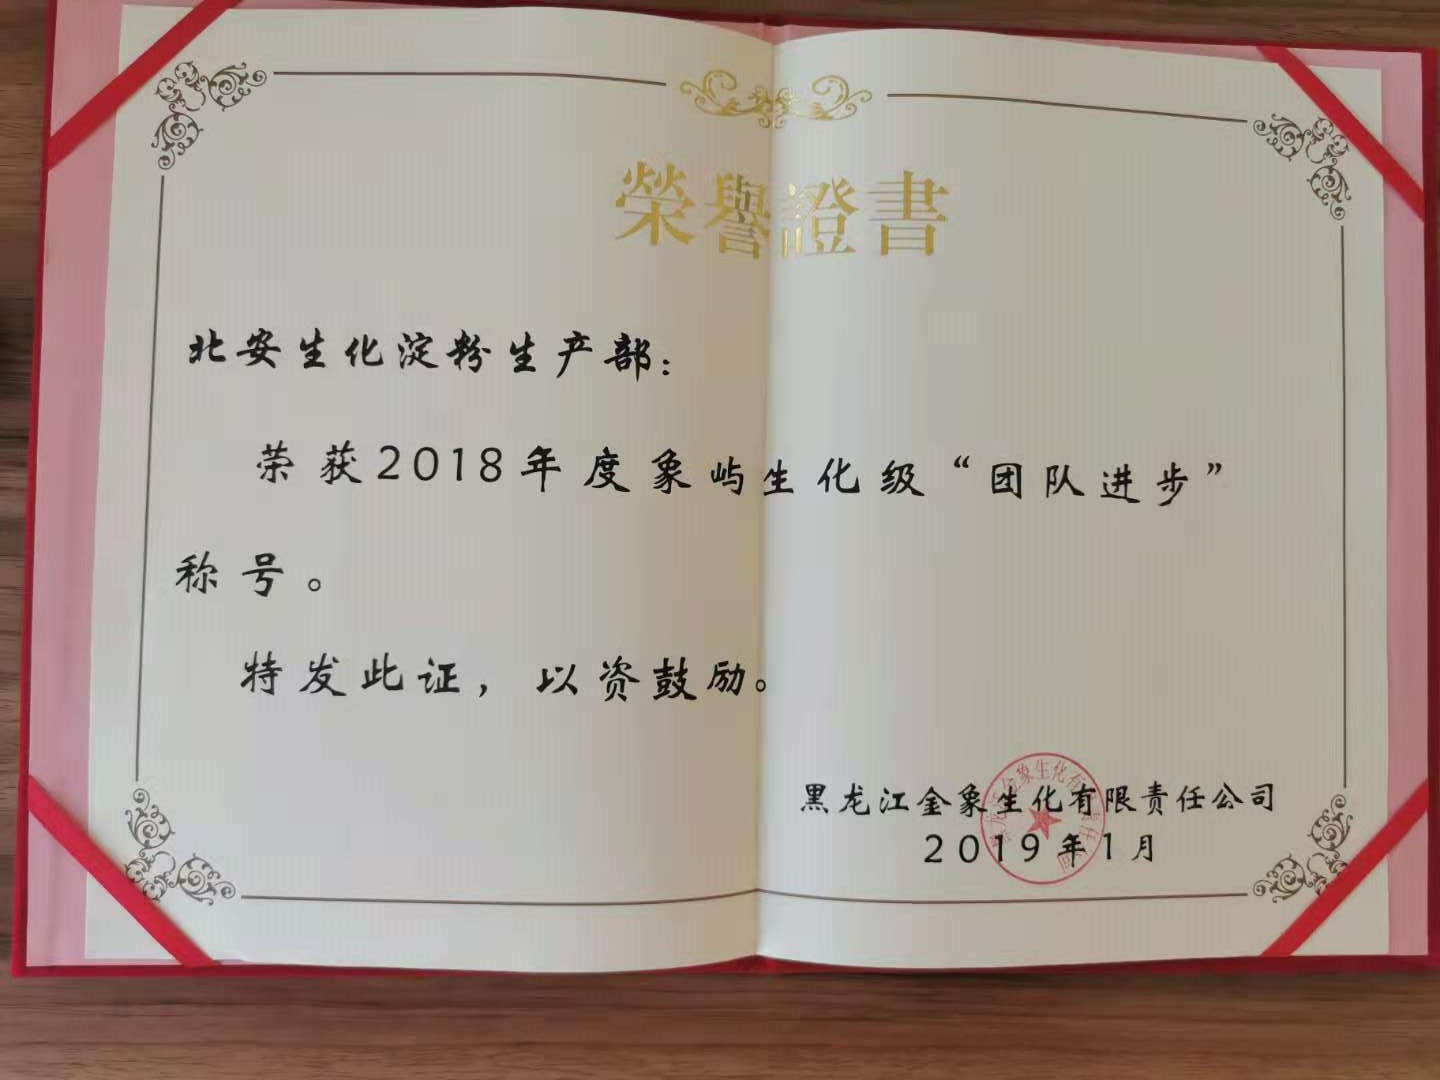 榮譽證書
北安生化淀粉生产部：
荣获2018年度象屿生化级“团队进步”
称号。
特发此证，以资鼓励。
黑龙江金象生化有限责任公司
2019年1月
黑龙江金象生化有限责任公司